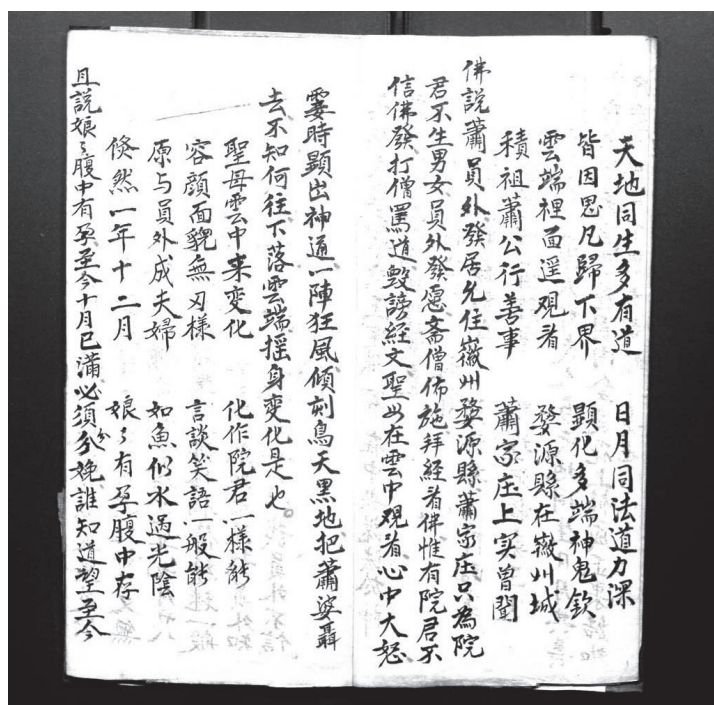 天地同生多有道 日月同法道力深
皆因思凡歸下界 顕化多端神鬼欽
雲端裡面遥观看 婺源縣在嶶州城
積祖蕭公行善事 蕭家庄上实曾聞
佛説蕭員外發居允住嶶州婺源縣蕭家庄只為院
君不生男女員外發愿斋僧佈施拜經看伴惟有院君不
信佛發打僧罵道毁謗經文聖母在雲中观看心中大怒
霎時顕出神通一陣狂風傾刻烏天黑地把蕭婆聶
去不知何往下落雲端揺身变化是也
聖母雲中来变化 化作院君一様能
容顔面貌無刃様 言談笑語一般能
原与員外成夫婦 如魚似水過光陰
倐然一年十二月 娘々有孕腹中存
且説娘々腹中有孕至今十月已满必須分娩誰知道望至今